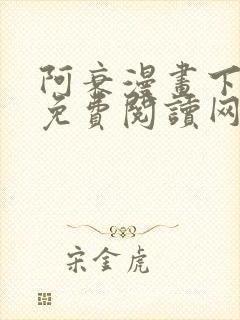 阿衰漫畫下
免費閱讀网
宋金虎